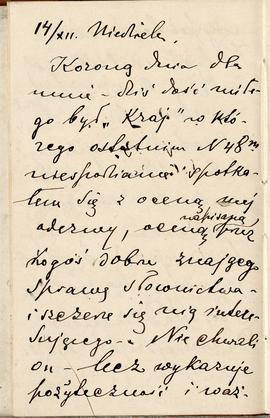 14/XII. Niedziela.
Koroną dnia dla
mnie – dziś dość miłe-
go był „Kraj" w któ-
rego ostatnim N 48 ym
niespodzianie spotka-
łem się z oceną mej
odezwy, oceną napisaną przez
kogoś dobrze znającego
sprawę słownictwa –
i szczerze się nią intere-
sującego – Nie chwali
on – lecz wykazuje
pożyteczność i waż-